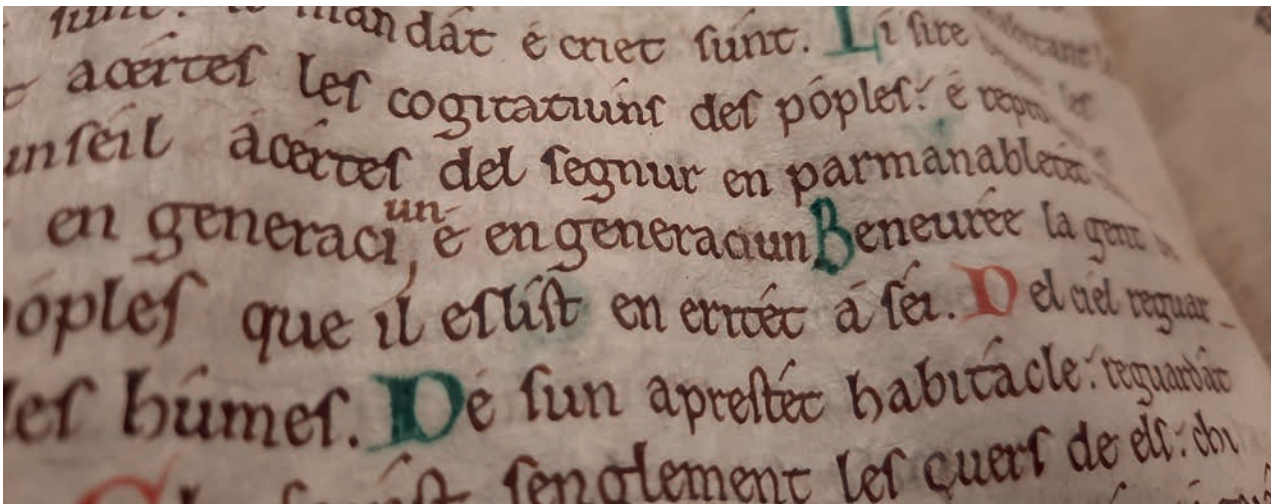 mandát é criét sunt. Li sire
acértes les cogitatiuns des póples: é
unseil ácértes del segnur en parmanableté
en generaciun é en generaciun Beneurée la gent
póples que il eslíst en eritét á séi. Del ciel reguar-
les húmes. Dé sun aprestét habitácle: reguardát
senglement les cuers de els: